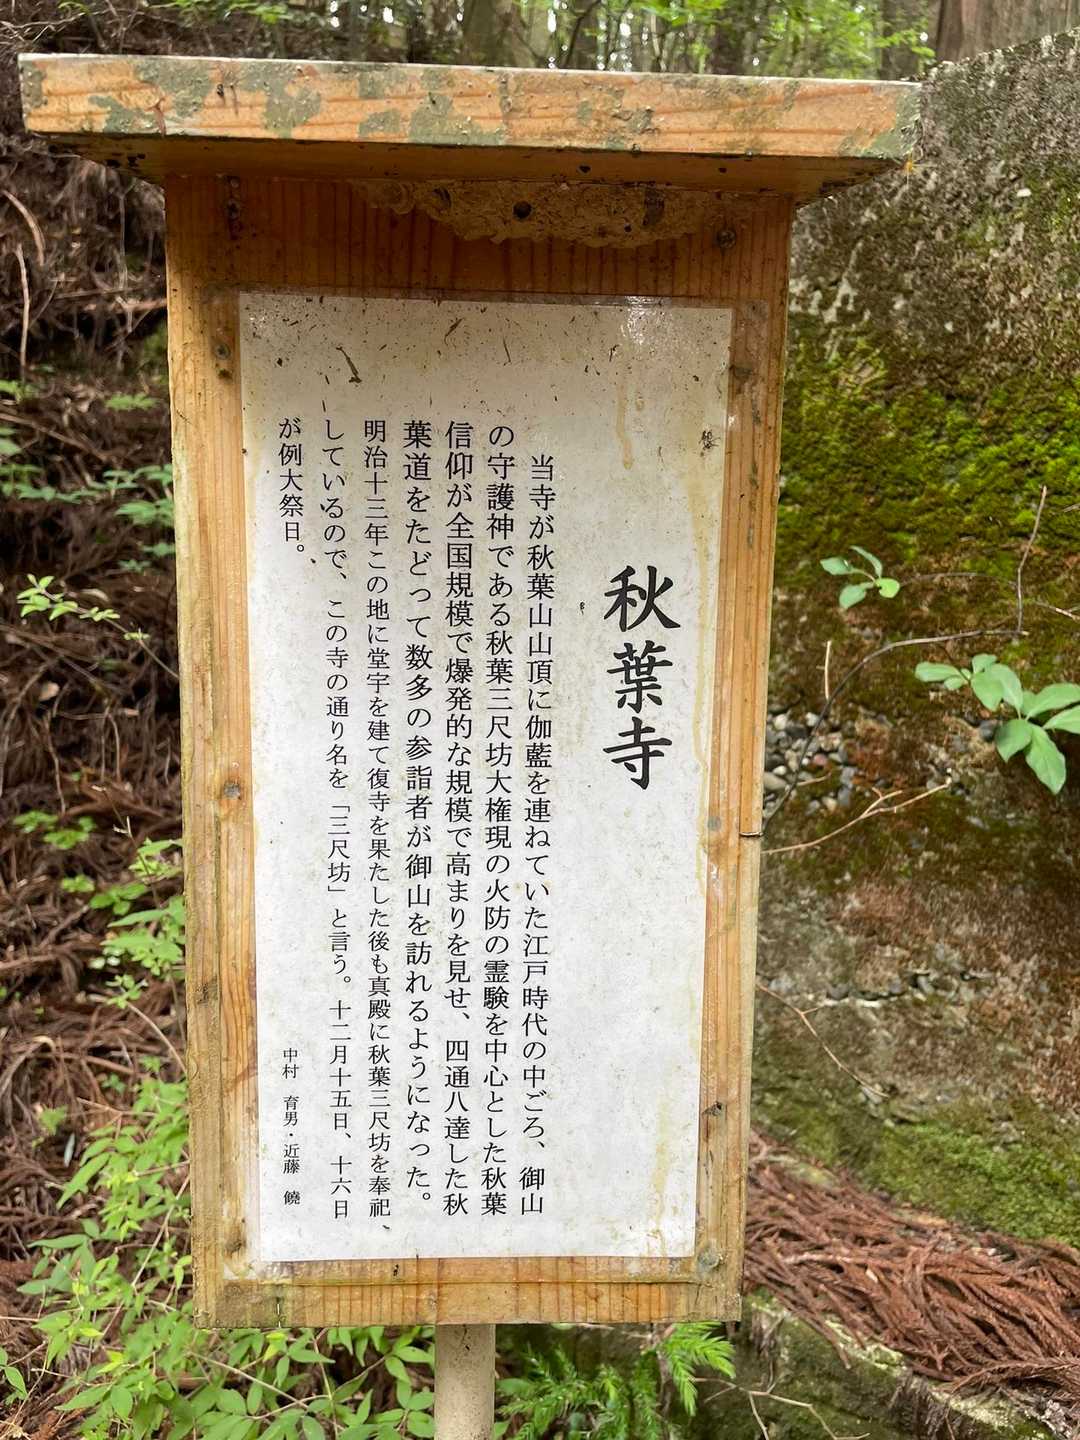 秋葉寺
当寺が秋葉山山頂に伽藍を連ねていた江戸時代の中ごろ、御山
の守護神である秋葉三尺坊大権現の火防の霊験を中心とした秋葉
信仰が全国規模で爆発的な規模で高まりを見せ、四通八達した秋
葉道をたどって数多の参詣者が御山を訪れるようになった。
明治十三年この地に堂宇を建て復寺を果たした後も真殿に秋葉三尺坊を奉祀、
しているので、この寺の通り名を「三尺坊」と言う。十二月十五日、十六日
が例大祭日。
中村 育男・近藤 饒